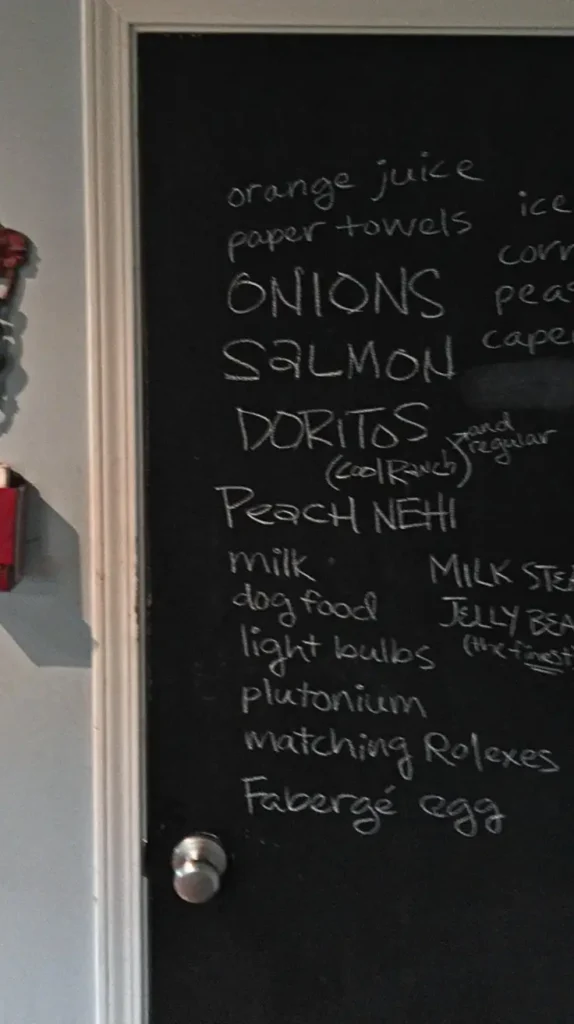 orange juice
paper towels
ONIONS
SALMON
DORITOS
(Cool Ranch)
and
regular
Peach NEHI
milk
dog food
light bulbs
plutonium
matching Rolexes
Fabergé egg
ice
MILK
JELLY
(the finest)